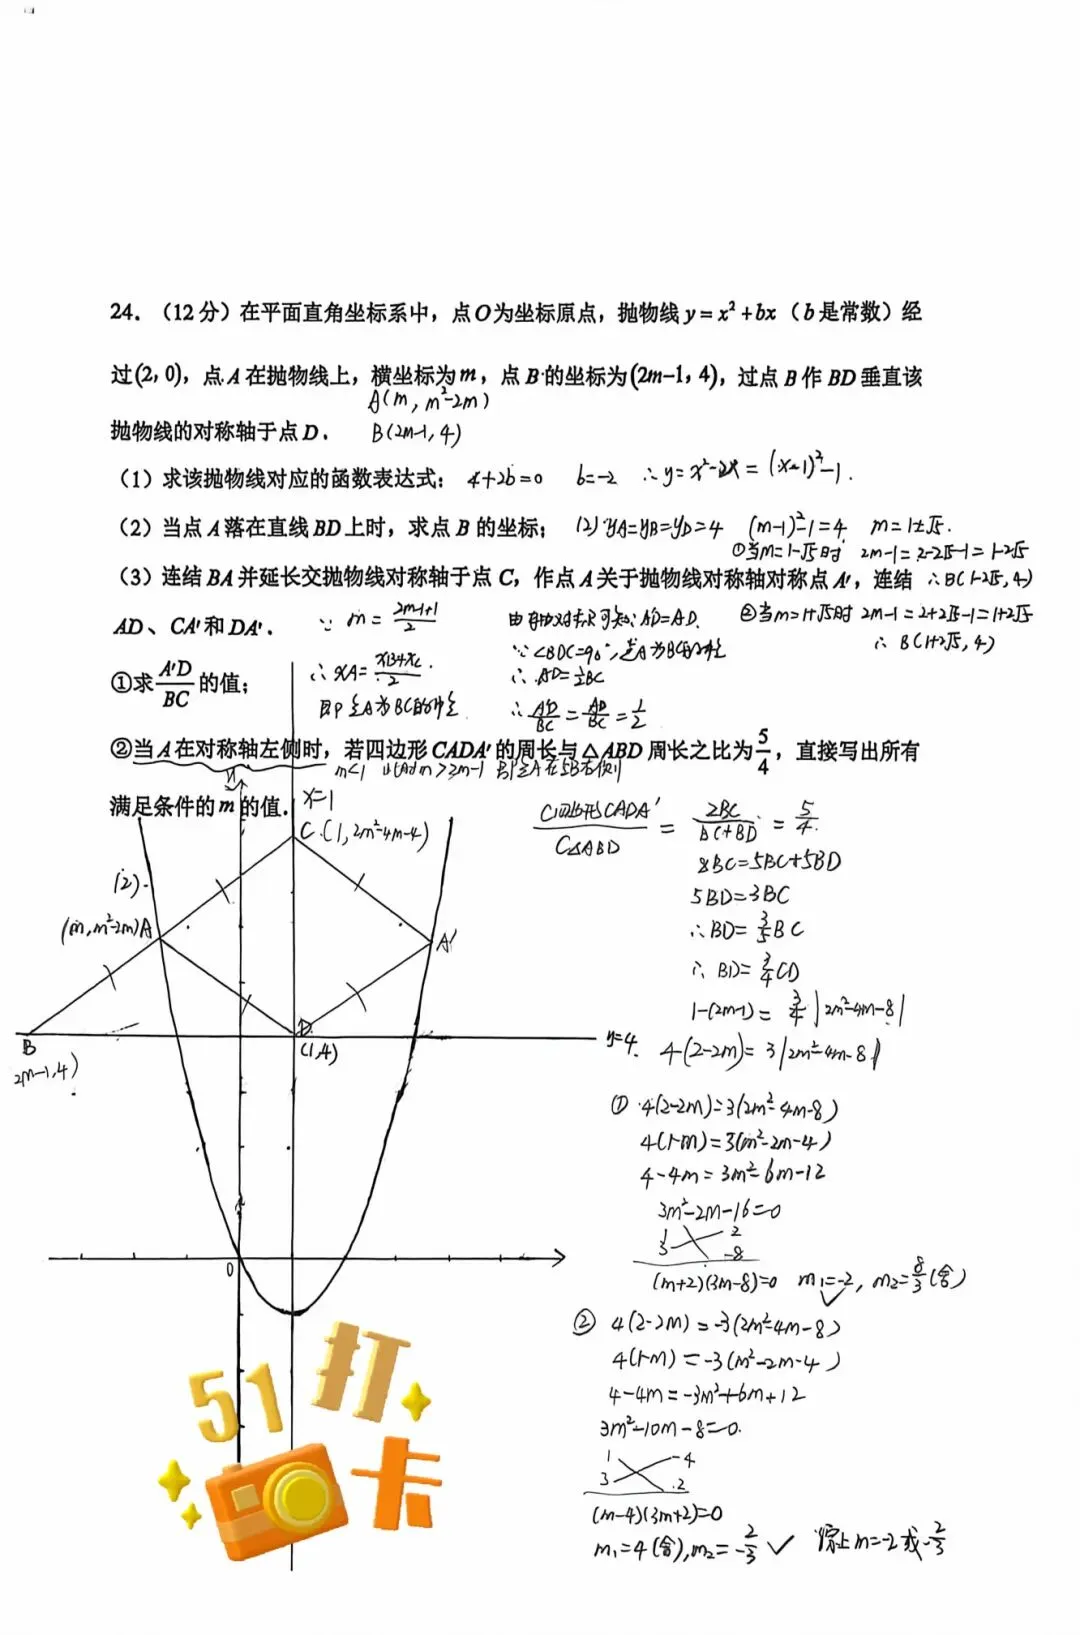 24. (12分)在平面直角坐标系中，点O为坐标原点，抛物线 y = x² + bx（b是常数）经
过(2, 0)，点A在抛物线上，横坐标为m，点B的坐标为(2m−1, 4)，过点B作BD垂直该
A(m, m²-2m)
抛物线的对称轴于点D.  B(2m-1, 4)
（1）求该抛物线对应的函数表达式；  4+2b=0  b=-2  ∴y=x²-2x=(x-1)²-1.
（2）当点A落在直线BD上时，求点B的坐标；  (2) yA=yB=yD=4  (m-1)²-1=4  m=1±√5.
①当m=1-√5时  2m-1=2-2√5-1=1-2√5
（3）连结BA并延长交抛物线对称轴于点C，作点A关于抛物线对称轴对称点A′，连结  ∴B(1-2√5, 4)
AD、CA′和DA′.  ∵ m = (2m-1+1)/2  由轴对称可知: A'D=AD.  ②当m=1+√5时 2m-1=2+2√5-1=1+2√5
∵∠BDC=90°, 点A为BC的中点  ∴B(1+2√5, 4)
①求 A′D/BC 的值；  ∴xA=(xB+xC)/2.  ∴AD=½BC
即点A为BC的中点  ∴ A'D/BC = AD/BC = 1/2
②当A在对称轴左侧时，若四边形CADA′的周长与△ABD周长之比为5/4，直接写出所有
m<1  此时m>2m-1 即点A在点B右侧
满足条件的m的值.  x=1
C四边形CADA'/C△ABD = 2BC/(BC+BD) = 5/4.
C(1, 2m²-4m-4)
8BC=5BC+5BD
(2).
5BD=3BC
(m, m²-2m)A
A'
∴BD=3/5 BC
∴BD=3/4 CD
1-(2m-1)=3/4|2m²-4m-8|
D
y=4.
4(2-2m)=3|2m²-4m-8|
B
(1,4)
2m-1,4)
① 4(2-2m)=3(2m²-4m-8)
4(1-m)=3(m²-2m-4)
4-4m=3m²-6m-12
3m²-2m-16=0
1  2
3  -8
0
(m+2)(3m-8)=0  m₁=-2, m₂=8/3(舍)
② 4(2-2m)=-3(2m²-4m-8)
4(1-m)=-3(m²-2m-4)
4-4m=-3m²+6m+12
3m²-10m-8=0.
1  -4
3  2
(m-4)(3m+2)=0
m₁=4(舍), m₂=-2/3 ✓  综上m=-2或-2/3
51打卡